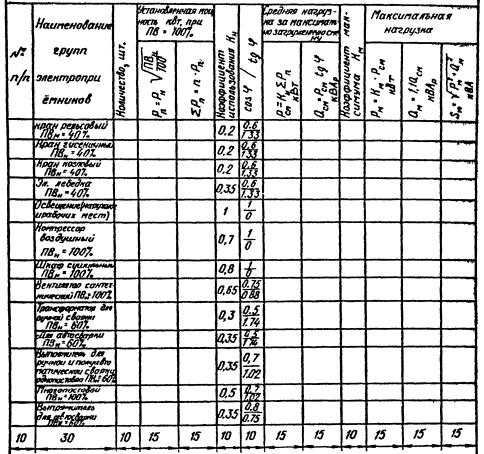 № п/п
Наименование групп электроприёмников
Количество, шт.
Установленная мощность кВт, при ПВ = 100%
Pп = Pн √ПВн/100
ΣPп = n · Pп
Коэффициент использования Kи
cos φ / tg φ
Средняя нагрузка за максимально загруженную
Pсм = Kи ΣPп кВт
Qсм = Pсм tg φ кВАр
Коэффициент максимума Kм
Максимальная нагрузка
Pм = Kм · Pсм кВт
Qм = 1,1Qсм кВАр
Sм = √Pм² + Qм² кВА
Кран рельсовый ПВн = 40% 0,2 0,6/1,33
Кран гусеничный ПВн = 40% 0,2 0,6/1,33
Кран козловый ПВн = 40% 0,2 0,6/1,33
Эл. лебедка ПВн = 40% 0,35 0,6/1,33
Освещение (наружное и рабочих мест) 1 1/0
Компрессор воздушный ПВн = 100% 0,7 1/0
Шкаф сушильный ПВн = 100% 0,8 1/0
Вентилятор сантехнический ПВн = 100% 0,65 0,75/0,88
Трансформатор для ручной сварки ПВн = 60% 0,3 0,5/1,74
Для автосварки ПВн = 60% 0,35 0,5/1,74
Выпрямитель для ручной и полуавтоматической сварки, однопостовой ПВн = 60% 0,35 0,7/1,02
Многопостовой ПВн = 100% 0,5 0,7/1,02
Выпрямитель для автосварки ПВн = 60% 0,35 0,8/0,75
10 30 10 15 15 10 10 15 15 10 15 15 15